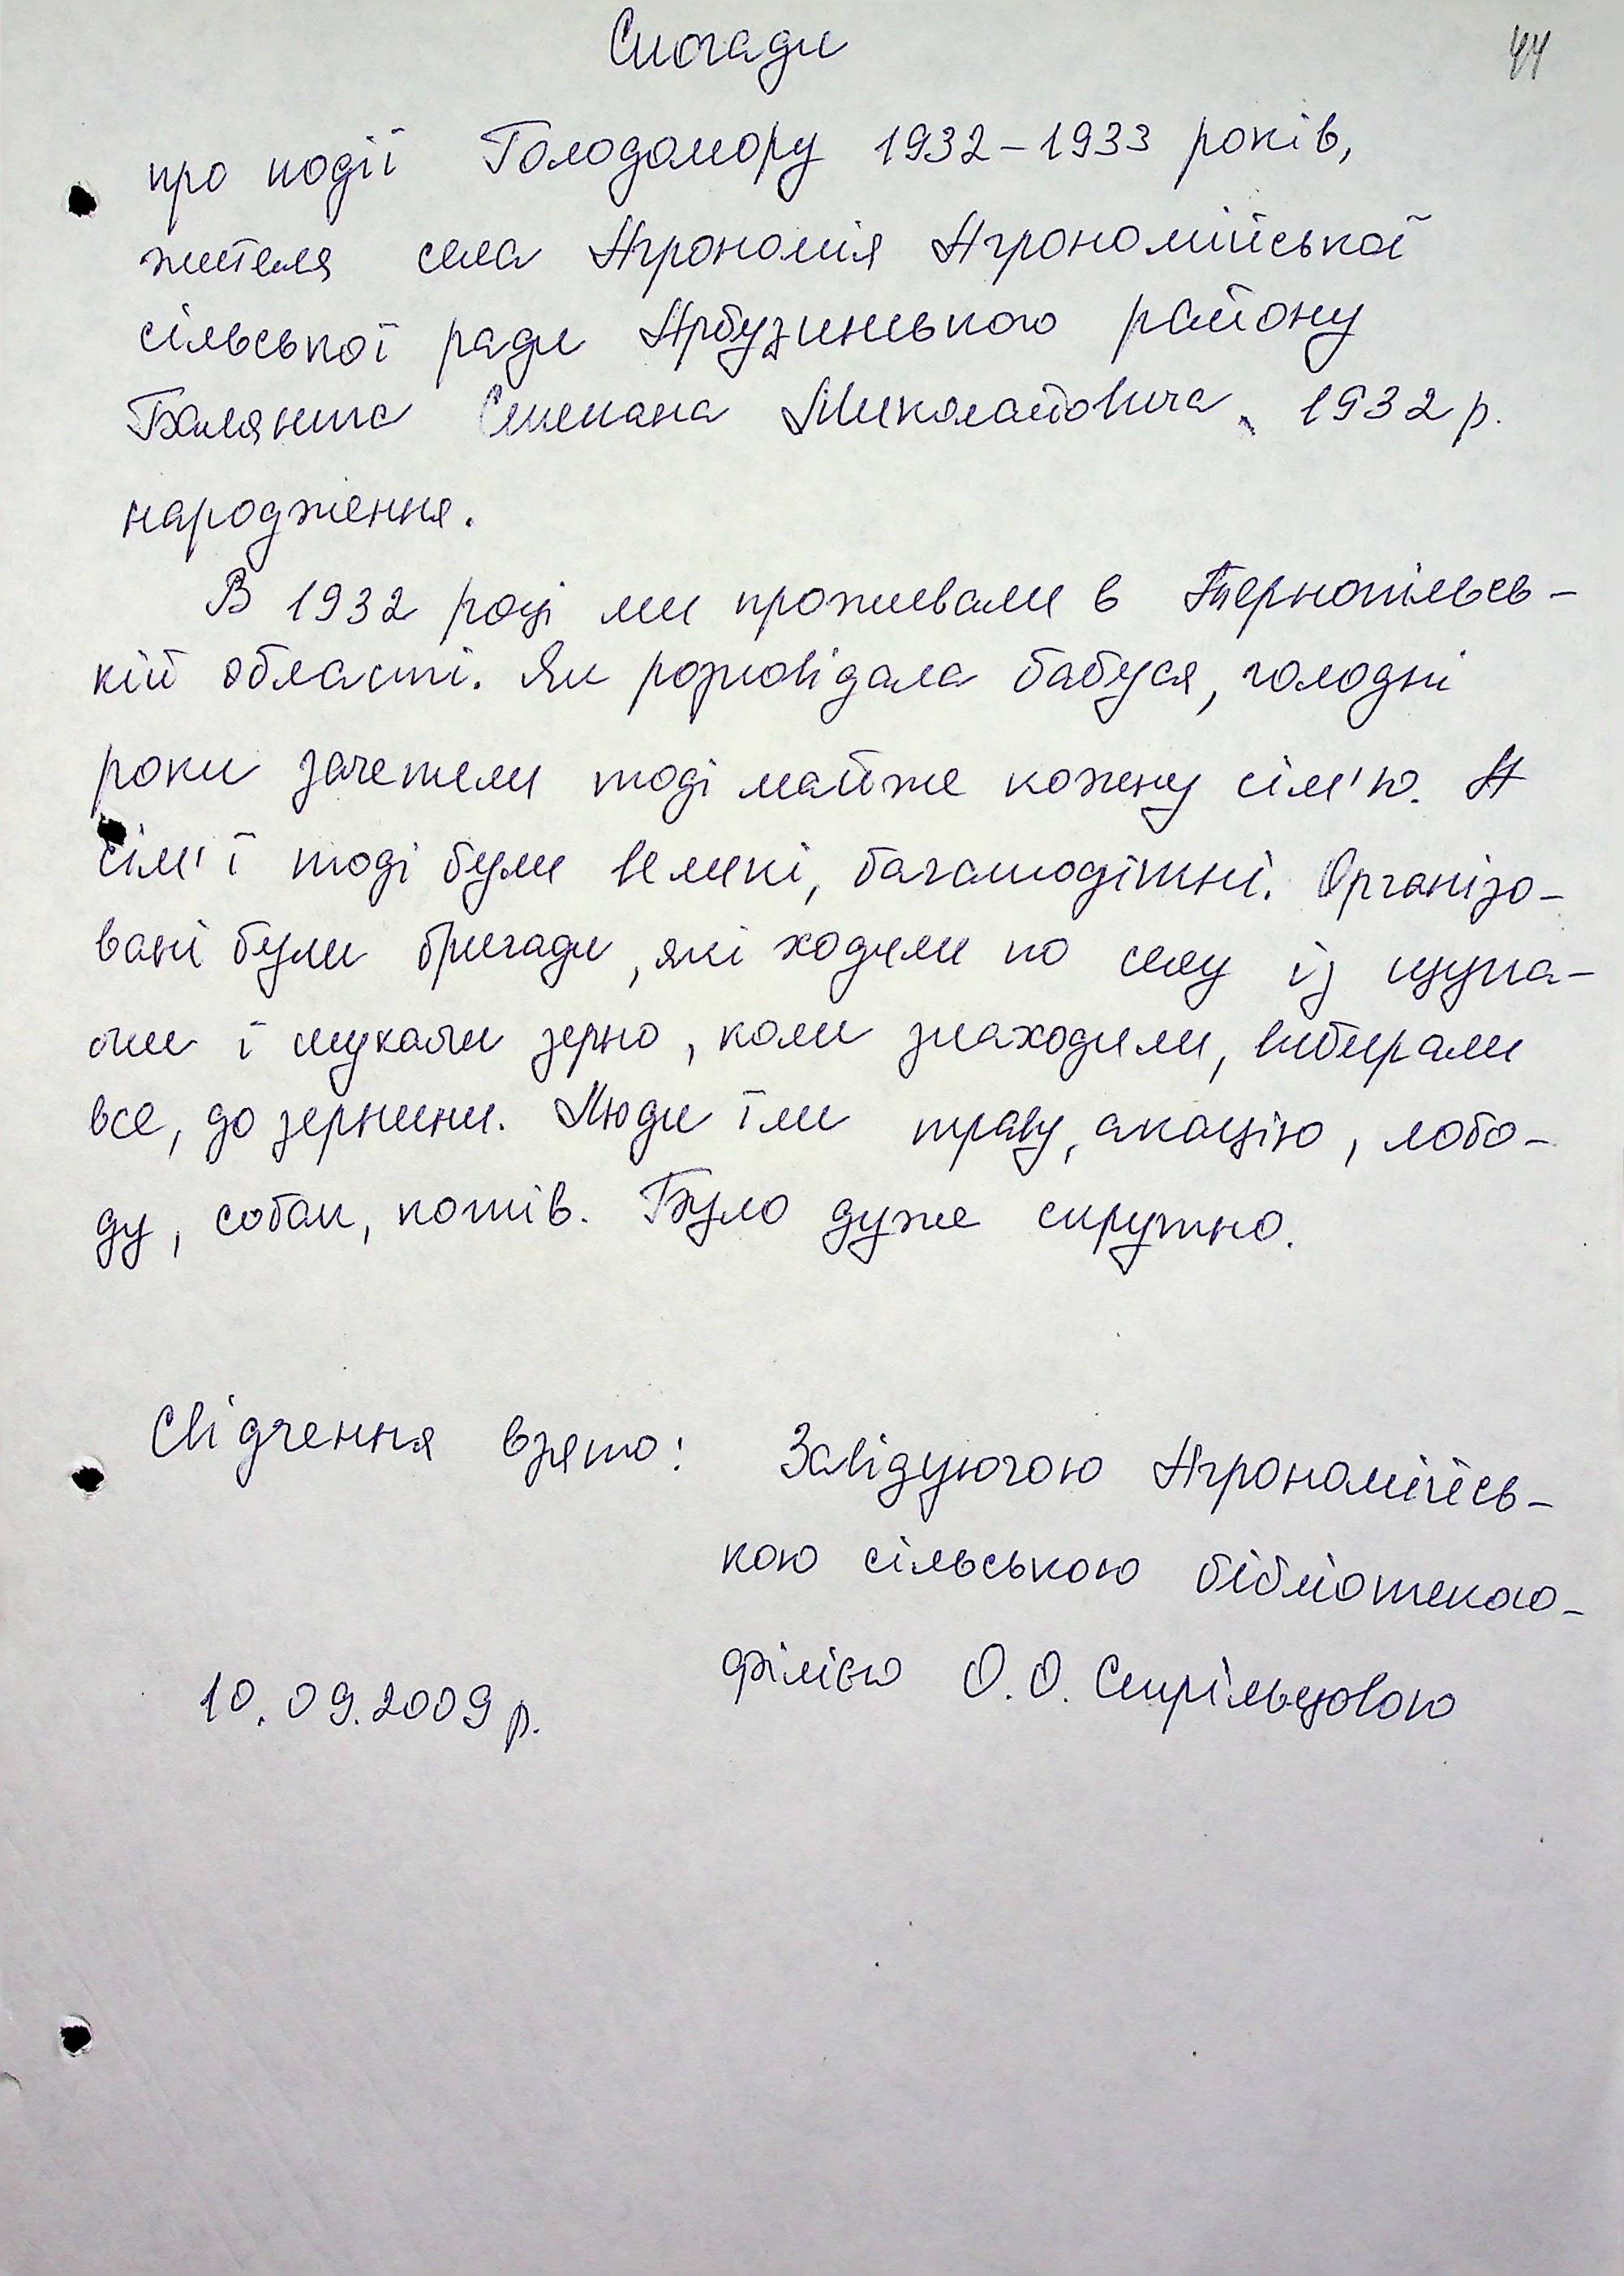 Спогади
44
про події Голодомору 1932-1933 років,
жителя села Агрономія Агрономійської
сільської ради Арбузинського району
Степана Миколайовича, 1932 р.
народження.
В 1932 році ми проживали в Тернопільсь-
кій області. Як розповідала бабуся, голодні
роки зачепили тоді майже кожну сім'ю. А
сім'ї тоді були великі, багатодітні. Організо-
вані були бригади, які ходили по селу із щупа-
ми і шукали зерно, коли знаходили, вибирали
все, до зернини. Люди їли траву, акацію, лобо-
ду, собак, котів. Було дуже скрутно.
Свідчення взято: Завідуючою Агрономійсь-
кою сільською бібліотекою-
філією О.О. Стрільцовою
10.09.2009 р.